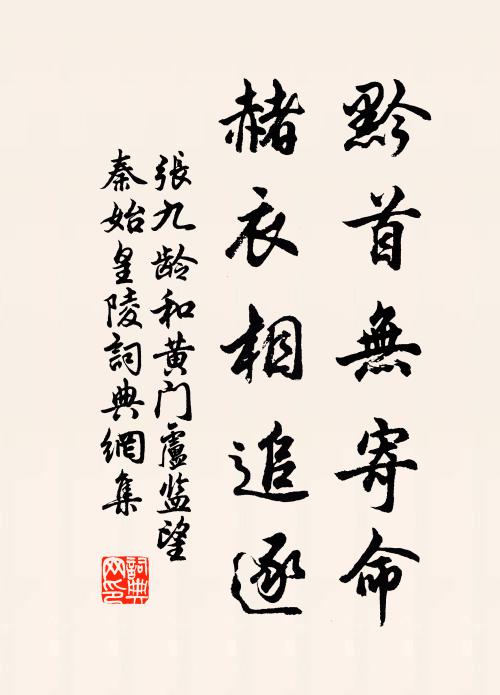 黔首無寄命
赭衣相追逐
張九龄和黄门盧监望
秦始皇陵詞典網集
詞典网印